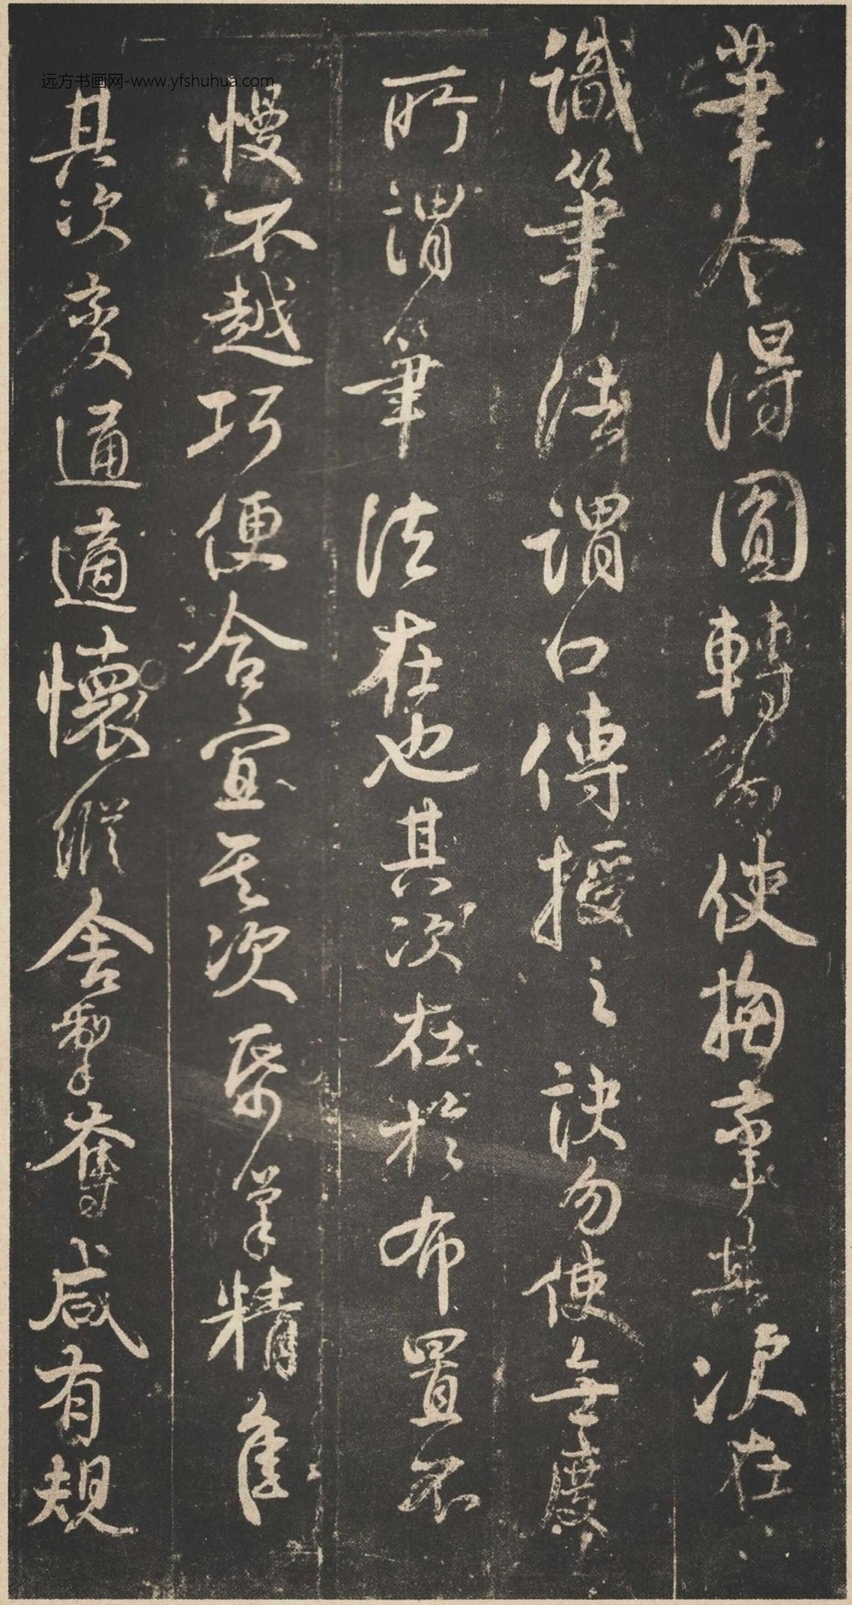 远方书画网-www.yfshuhua.com
筆令得圓轉使拘挛其次在
識筆法謂口傳授之訣勿使無度
所謂筆法在也其次在於布置不
慢不越巧便合宜其次紙筆精佳
其次变通適懷縱舍掣奪咸有規